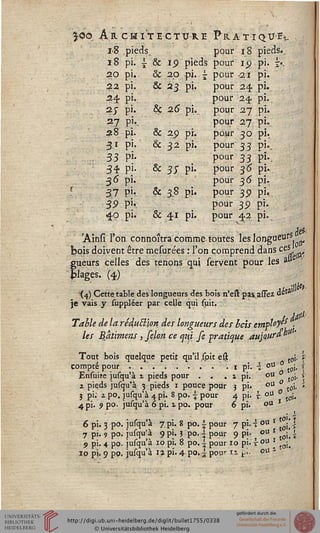 300 ARCHITECTURE PRATIQUE.
18 pieds pour 18 pieds.
18 pi. ½ & 19 pieds pour 19 pi. ½.
20 pi. & 20 pi. ½ pour 21 pi.
22 pi. & 23 pi. pour 24 pi.
24 pi. pour 24 pi.
25 pi. & 26 pi. pour 27 pi.
27 pi. pour 27 pi.
28 pi. & 29 pi. pour 30 pi.
31 pi. & 32 pi. pour 33 pi.
33 pi. pour 33 pi.
34 pi. & 35 pi. pour 36 pi.
36 pi. pour 36 pi.
37 pi. & 38 pi. pour 39 pi.
39 pi. pour 39 pi.
40 pi. & 41 pi. pour 42 pi.
Ainsi l'on connoîtra comme toutes les longueurs des
bois doivent être mesurées : l'on comprend dans ces lon-
gueurs celles des tenons qui servent pour les assem-
blages. (4)
(4) Cette table des longueurs des bois n'est pas assez détaillée,
je vais y suppléer par celle qui suit.
Table de la réduction des longueurs des bois employés dans
les Bâtimens, selon ce qui se pratique aujourd'hui.
Tout bois quelque petit qu'il soit est
compté pour . . . . . . . . . 1 pi. ½ ou 0 toi. ¼
Ensuite jusqu'à 2 pieds pour . . . 2 pi. ou 0 toi.
2 pieds jusqu'à 3 pieds 1 pouce pour 3 pi. ou 0 toi. ½
3 pi. 2 po. jusqu'à 4 pi. 8 po. ½ pour 4 pi. ½ ou 0 toi.
4 pi. 9 po. jusqu'à 6 pi. 2 po. pour 6 pi. ou 1 toi.
6 pi. 3 po. jusqu'à 7 pi. 8 po. ½ pour 7 pi. ½ ou 1 toi. ¼
7 pi. 9 po. jusqu'à 9 pi. 3 po. ½ pour 9 pi. ou 1 toi. ½
9 pi. 4 po. jusqu'à 10 pi. 8 po. ½ pour 10 pi. ½ ou 1 toi.
10 pi. 9 po. jusqu'à 12 pi. 4 po. ½ pour 12 pi. ou 2 toi.
UNIVERSITÄTS-
BIBLIOTHEK
HEIDELBERG
http://digi.ub.uni-heidelberg.de/diglit/bullet1755/0338
© Universitätsbibliothek Heidelberg
gefördert durch die
Deutsche Forschungsgemeinschaft